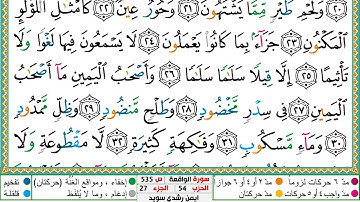 ﴿٢٠﴾ وَلَحْمِ طَيْرٍ مِّمَّا يَشْتَهُونَ ﴿٢١﴾ وَحُورٌ عِينٌ ﴿٢٢﴾ كَأَمْثَٰلِ ٱللُّؤْلُؤِ
ٱلْمَكْنُونِ ﴿٢٣﴾ جَزَآءًۢ بِمَا كَانُوا۟ يَعْمَلُونَ ﴿٢٤﴾ لَا يَسْمَعُونَ فِيهَا لَغْوًا وَلَا
تَأْثِيمًا ﴿٢٥﴾ إِلَّا قِيلًا سَلَٰمًا سَلَٰمًا ﴿٢٦﴾ وَأَصْحَٰبُ ٱلْيَمِينِ مَآ أَصْحَٰبُ
ٱلْيَمِينِ ﴿٢٧﴾ فِى سِدْرٍ مَّخْضُودٍ ﴿٢٨﴾ وَطَلْحٍ مَّنضُودٍ ﴿٢٩﴾ وَظِلٍّ مَّمْدُودٍ
﴿٣٠﴾ وَمَآءٍ مَّسْكُوبٍ ﴿٣١﴾ وَفَٰكِهَةٍ كَثِيرَةٍ ﴿٣٢﴾ لَّا مَقْطُوعَةٍ وَلَا
سورة الواقعة ص 535
الحزب 54 الجزء 27
ايمن رشدي سويد
مد ٦ حركات لزوماً مد ٢ أو ٤ أو ٦ جوازاً
مد واجب ٤ أو ٥ حركات مد حركتان
إخفاء، ومواقع الغنة (حركتان) تفخيم
إدغام، وما لا يلفظ قلقلة